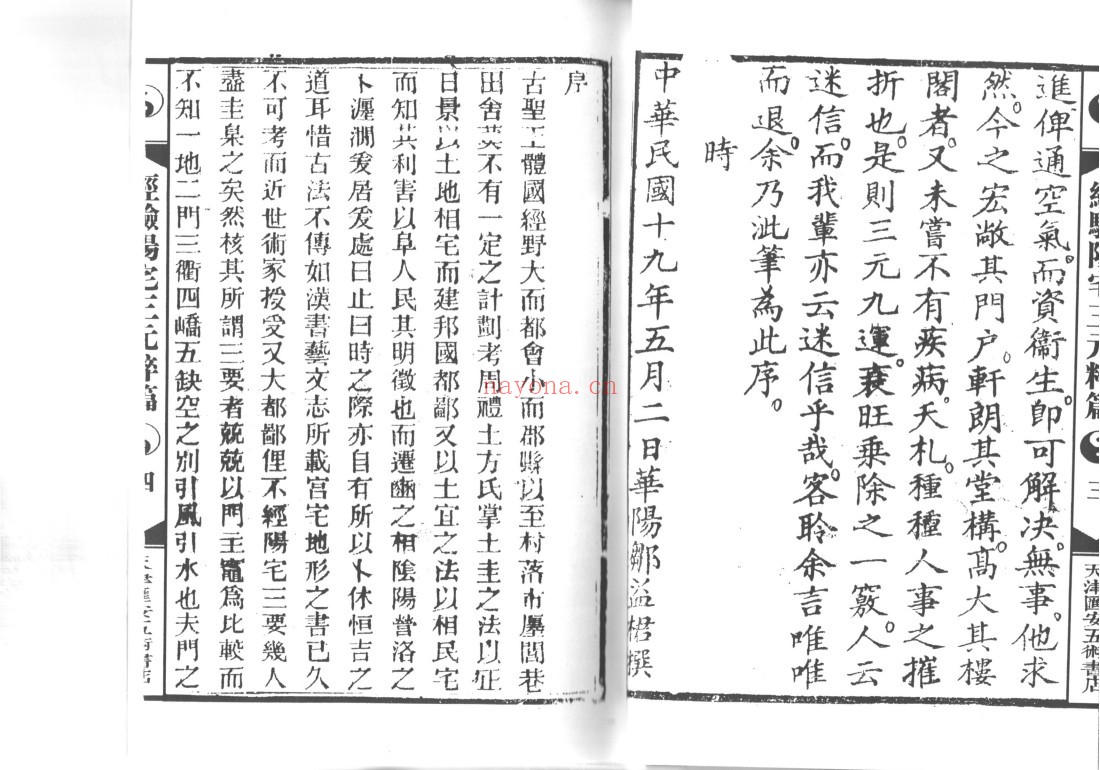 進俾通空氣。而資衞生。卽可解决。無事。他求
然。今之宏敞其門户。軒朗其堂構。高大其樓
閣者。又未嘗不有疾病。夭札。種種人事之摧
折也。是則三元九運。衰旺乘除之一竅。人云
迷信。而我輩亦云迷信乎哉。客聆余言唯唯
而退。余乃泚筆為此序。
時
中華民國十九年五月二日華陽鄒益楷撰
三
天津匯安五術書店
序
古聖王體國經野大而都會小而郡縣以至村落市廛閭巷
出舍莫不有一定之計劃考周禮土方氏掌土圭之法以正
日景以土地相宅而建邦國都鄙又以土宜之法以相民宅
而知其利害以阜人民其明徵也而遷豳之相陰陽營洛之
卜瀍澗爰居爰處曰止曰時之際亦自有所以卜休恒吉之
道耳惜古法不傳如漢書藝文志所載宫宅地形之書已久
不可考而近世術家授受又大都鄙俚不經陽宅三要幾人
盡圭臬之矣然核其所謂三要者兢兢以門主竈爲比較而
不知一地二門三衢四嶠五缺空之别引風引水也夫門之
經驗陽宅三元粹篇
四
nayona.cn